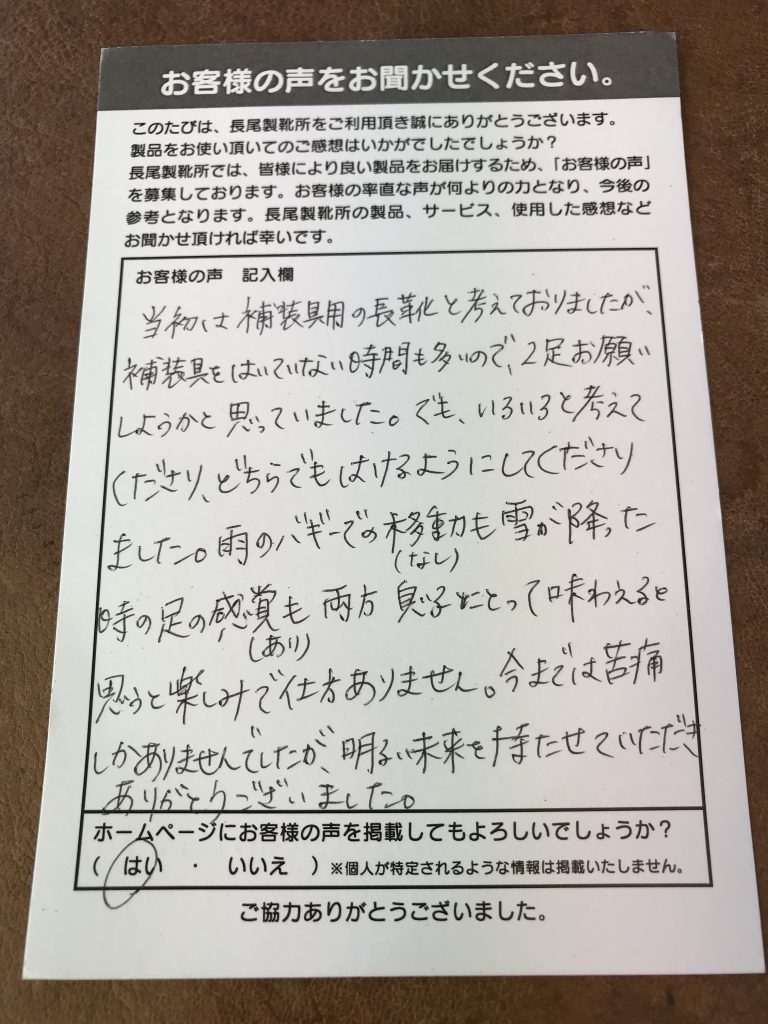 お客様の声をお聞かせください。
このたびは、長尾製靴所をご利用頂き誠にありがとうございます。
製品をお使い頂いてのご感想はいかがでしたでしょうか?
長尾製靴所では、皆様により良い製品をお届けするため、「お客様の声」
を募集しております。お客様の率直な声が何よりの力となり、今後の
参考となります。長尾製靴所の製品、サービス、使用した感想など
お聞かせ頂ければ幸いです。
お客様の声 記入欄
当初は補装具用の長靴と考えておりましたが、
補装具をはいていない時間も多いので、2足お願い
しようかと思っていました。でも、いろいろと考えて
くださり、どちらでもはけるようにしてくださり
ました。雨のバギーでの移動も雪が降った
(なし)
時の足の感覚も両方息子にとって味わえると
(あり)
思うと楽しみで仕方ありません。今までは苦痛
しかありませんでしたが、明るい未来を持たせていただき
ありがとうございました。
ホームページにお客様の声を掲載してもよろしいでしょうか?
( はい ・ いいえ ) ※個人が特定されるような情報は掲載いたしません。
ご協力ありがとうございました。